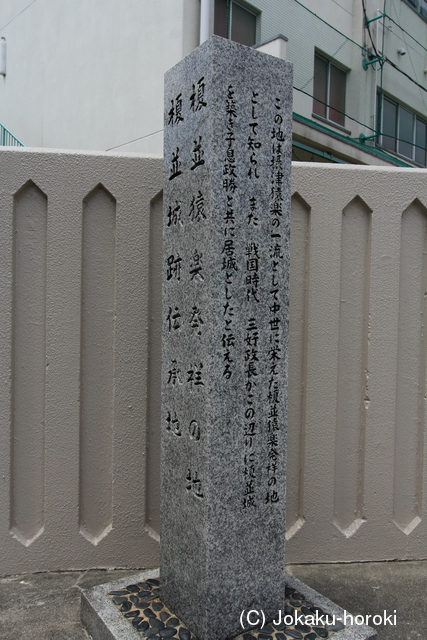 榎並猿楽発祥の地
榎並城跡伝承地
この地は摂津猿楽の一流として中世に栄えた榎並猿楽発祥の地
として知られ また 戦国時代 三好政長がこの辺りに榎並城
を築き子息政勝と共に居城としたと伝える
(C) Jokaku-horoki